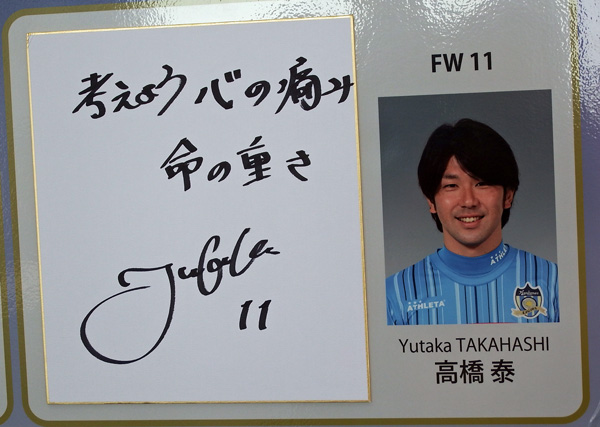 考えよう心の痛み
命の重さ
Yutaka
11
FW 11
ATHLETA
ATHLETA
Yutaka TAKAHASHI
高橋 泰